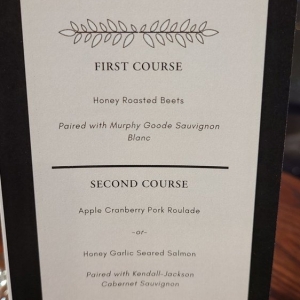 FIRST COURSE
Honey Roasted Beets
Paired with Murphy Goode Sauvignon
Blanc
SECOND COURSE
Apple Cranberry Pork Roulade
-or-
Honey Garlic Seared Salmon
Paired with Kendall-Jackson
Cabernet Sauvignon